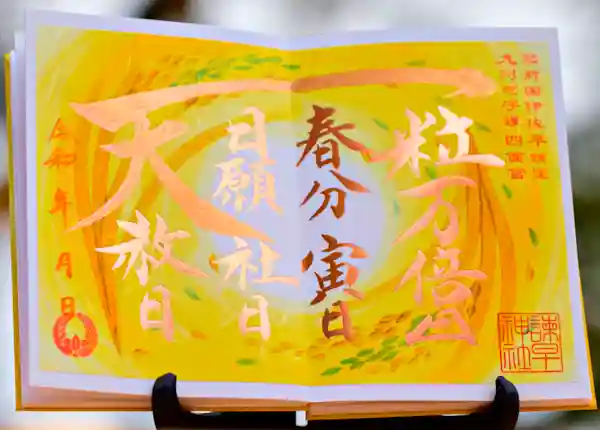 肥前国伊佐早鎮座
九州総守護四面宮
一粒万倍日
春分 寅日
日願 社日
天赦日
令和 年 月 日
諫早
神社